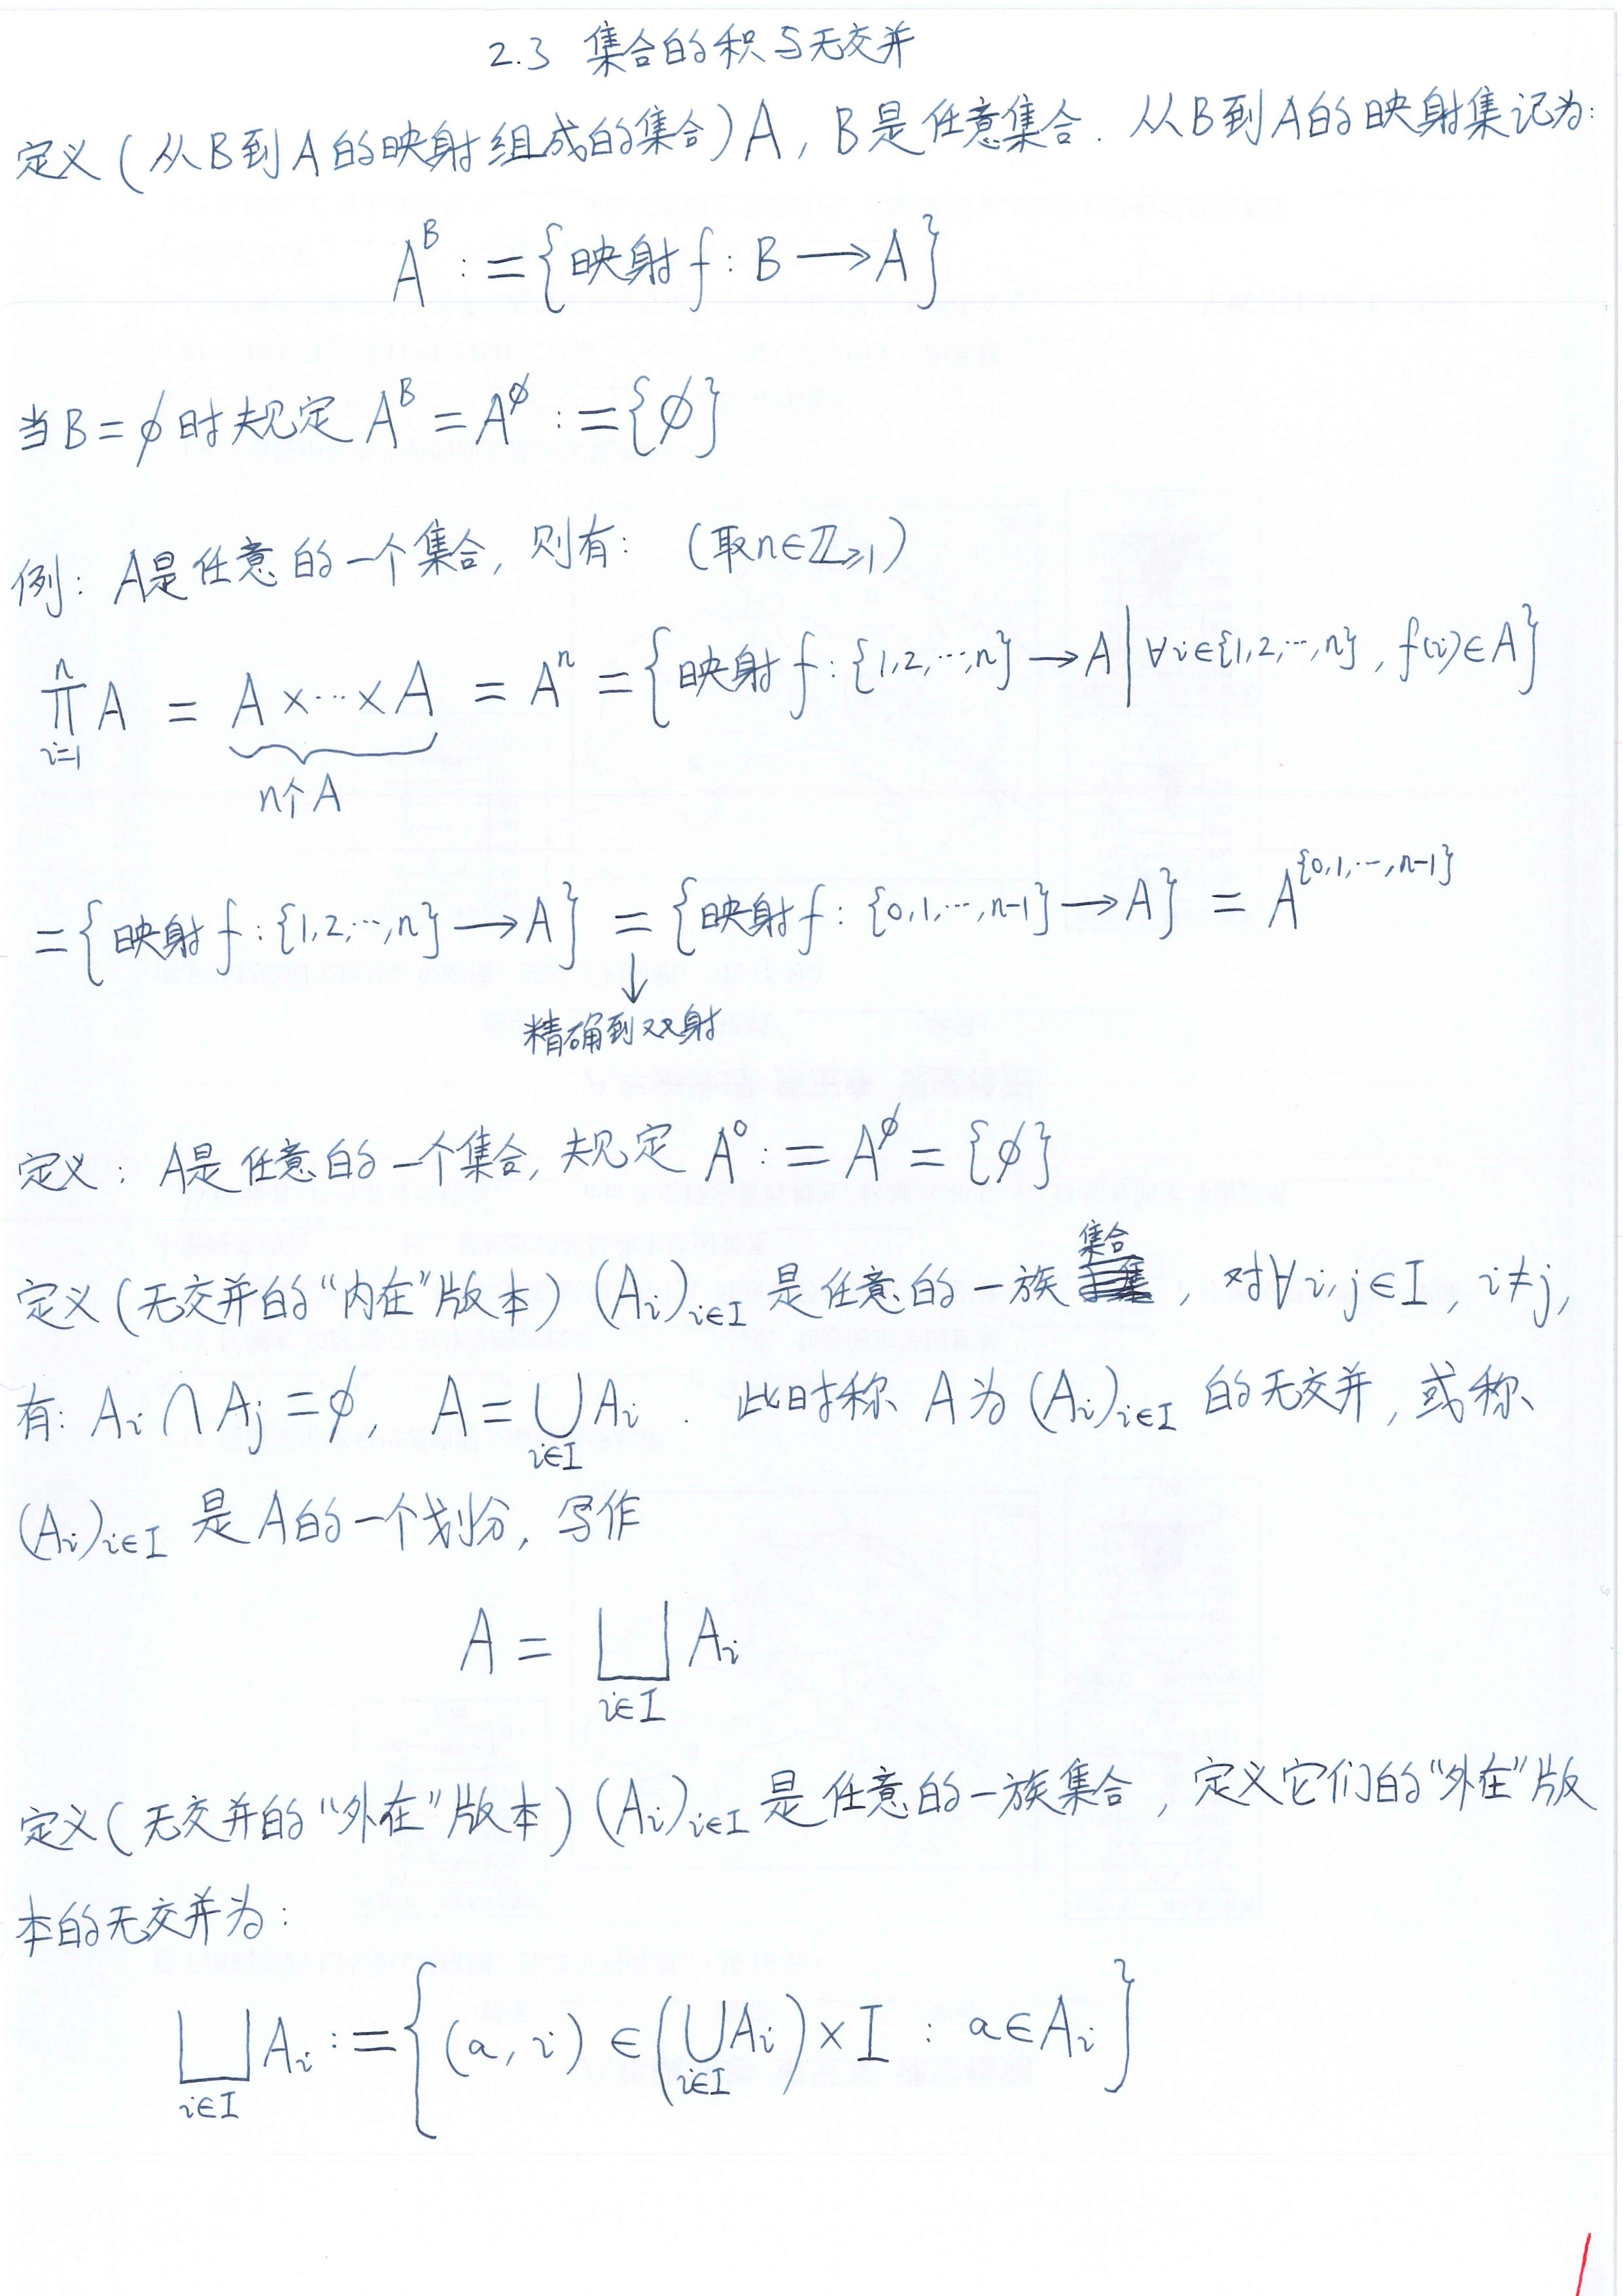 2.3 集合的积与无交并
定义(从B到A的映射组成的集合)A, B是任意集合. 从B到A的映射集记为:
A^B := {映射 f: B ⟶ A}
当B=∅时规定 A^B = A^∅ := {∅}
例: A是任意的一个集合, 则有: (取n∈ℤ≥1)
∏_{i=1}^{n} A = A×⋯×A = A^n = {映射 f: {1,2,⋯,n} → A | ∀i∈{1,2,⋯,n}, f(i)∈A}
n个A
= {映射 f: {1,2,⋯,n} ⟶ A} = {映射 f: {0,1,⋯,n-1} ⟶ A} = A^{{0,1,⋯,n-1}}
↓
精确到双射
定义: A是任意的一个集合, 规定 A^0 := A^∅ = {∅}
定义(无交并的“内在”版本) (A_i)_{i∈I} 是任意的一族集合, 对∀i,j∈I, i≠j,
有: A_i ∩ A_j = ∅, A = ⋃_{i∈I} A_i . 此时称 A为 (A_i)_{i∈I} 的无交并, 或称
(A_i)_{i∈I} 是A的一个划分, 写作
A = ⨆_{i∈I} A_i
定义(无交并的“外在”版本) (A_i)_{i∈I} 是任意的一族集合, 定义它们的“外在”版
本的无交并为:
⨆_{i∈I} A_i := {(a, i) ∈ (⋃_{i∈I} A_i) × I : a∈A_i}